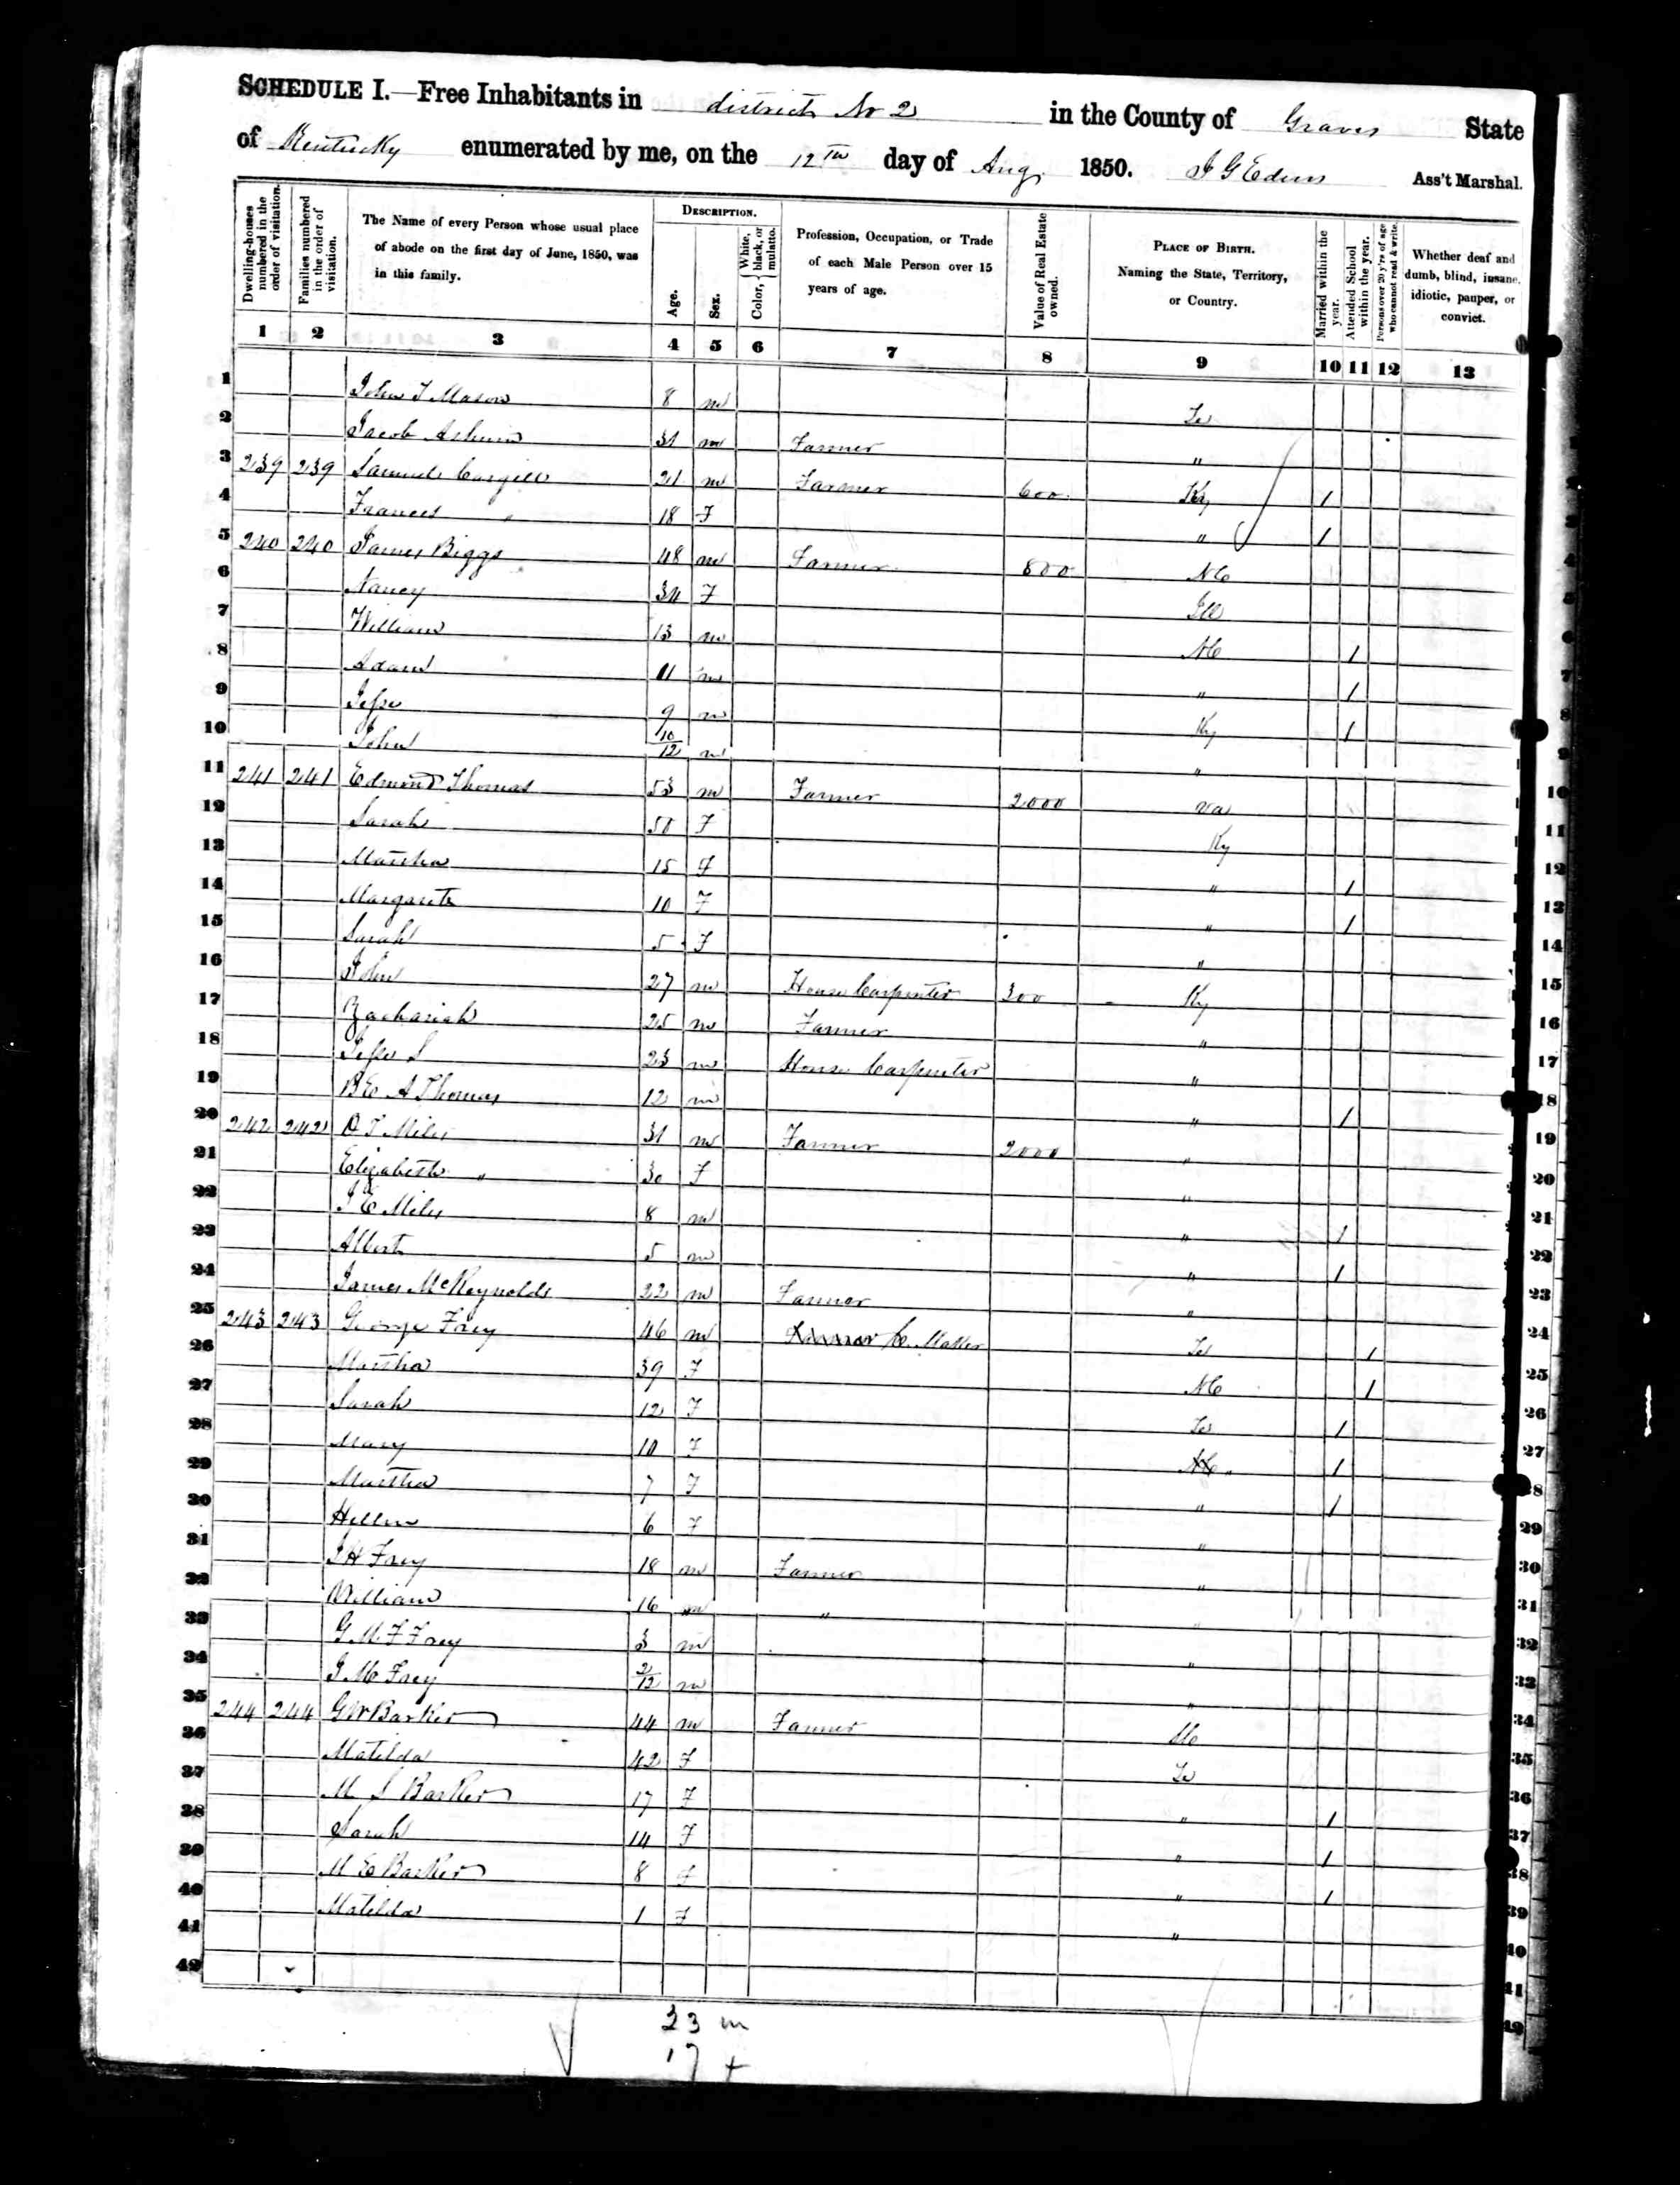 SCHEDULE I.—Free Inhabitants in district No 2 in the County of Graves State
of Kentucky enumerated by me, on the 12th day of Aug 1850. Ass't Marshal.
Dwelling-houses numbered in the order of visitation.
Families numbered in the order of visitation.
The Name of every Person whose usual place of abode on the first day of June, 1850, was in this family.
DESCRIPTION.
Age.
Sex.
Color, { White, black, or mulatto.
Profession, Occupation, or Trade of each Male Person over 15 years of age.
Value of Real Estate owned.
PLACE OF BIRTH. Naming the State, Territory, or Country.
Married within the year.
Attended School within the year.
Persons over 20 y'rs of age who cannot read & write.
Whether deaf and dumb, blind, insane, idiotic, pauper, or convict.
1 2 3 4 5 6 7 8 9 10 11 12 13
1 John T Mason 8 m Te
2 Jacob 31 m Farmer "
3 239 239 Samuel Cargill 21 m Farmer 600 Ky 1
4 Frances " 18 F " 1
5 240 240 James Biggs 48 m Farmer 800 NC
6 Nancy 34 F Ill
7 William 13 m NC 1
8 Adam 11 m " 1
9 Jesse 9 m Ky 1
10 John 10/12 m "
11 241 241 Edmond Thomas 53 m Farmer 2000 Va
12 Sarah 50 F Ky
13 Martha 15 F " 1
14 Margaret 10 F " 1
15 Sarah 5 F "
16 John 27 m House Carpenter 300 Ky
17 Zachariah 25 m Farmer "
18 Jesse S 23 m House Carpenter "
19 A Thomas 12 m " 1
20 242 242 Miles 31 m Farmer 2000 "
21 Elizabeth " 30 F "
22 J C Miles 8 m " 1
23 Albert 5 m " 1
24 James McReynolds 22 m Farmer "
25 243 243 George Frey 46 m Farmer Maker Te 1
26 Martha 39 F NC 1
27 Sarah 12 F Te 1
28 Mary 10 F NC " 1
29 Martha 7 F " 1
30 Hellen 6 F "
31 J H Frey 18 m Farmer "
32 William 16 m " "
33 G M F Frey 3 m "
34 J M Frey 2/12 m "
35 244 244 G W Barker 44 m Farmer NC
36 Matilda 42 F Te
37 M S Barker 17 F " 1
38 Sarah 14 F " 1
39 M E Barker 8 F " 1
40 Matilda 1 F "
41
42
23 m
17 f